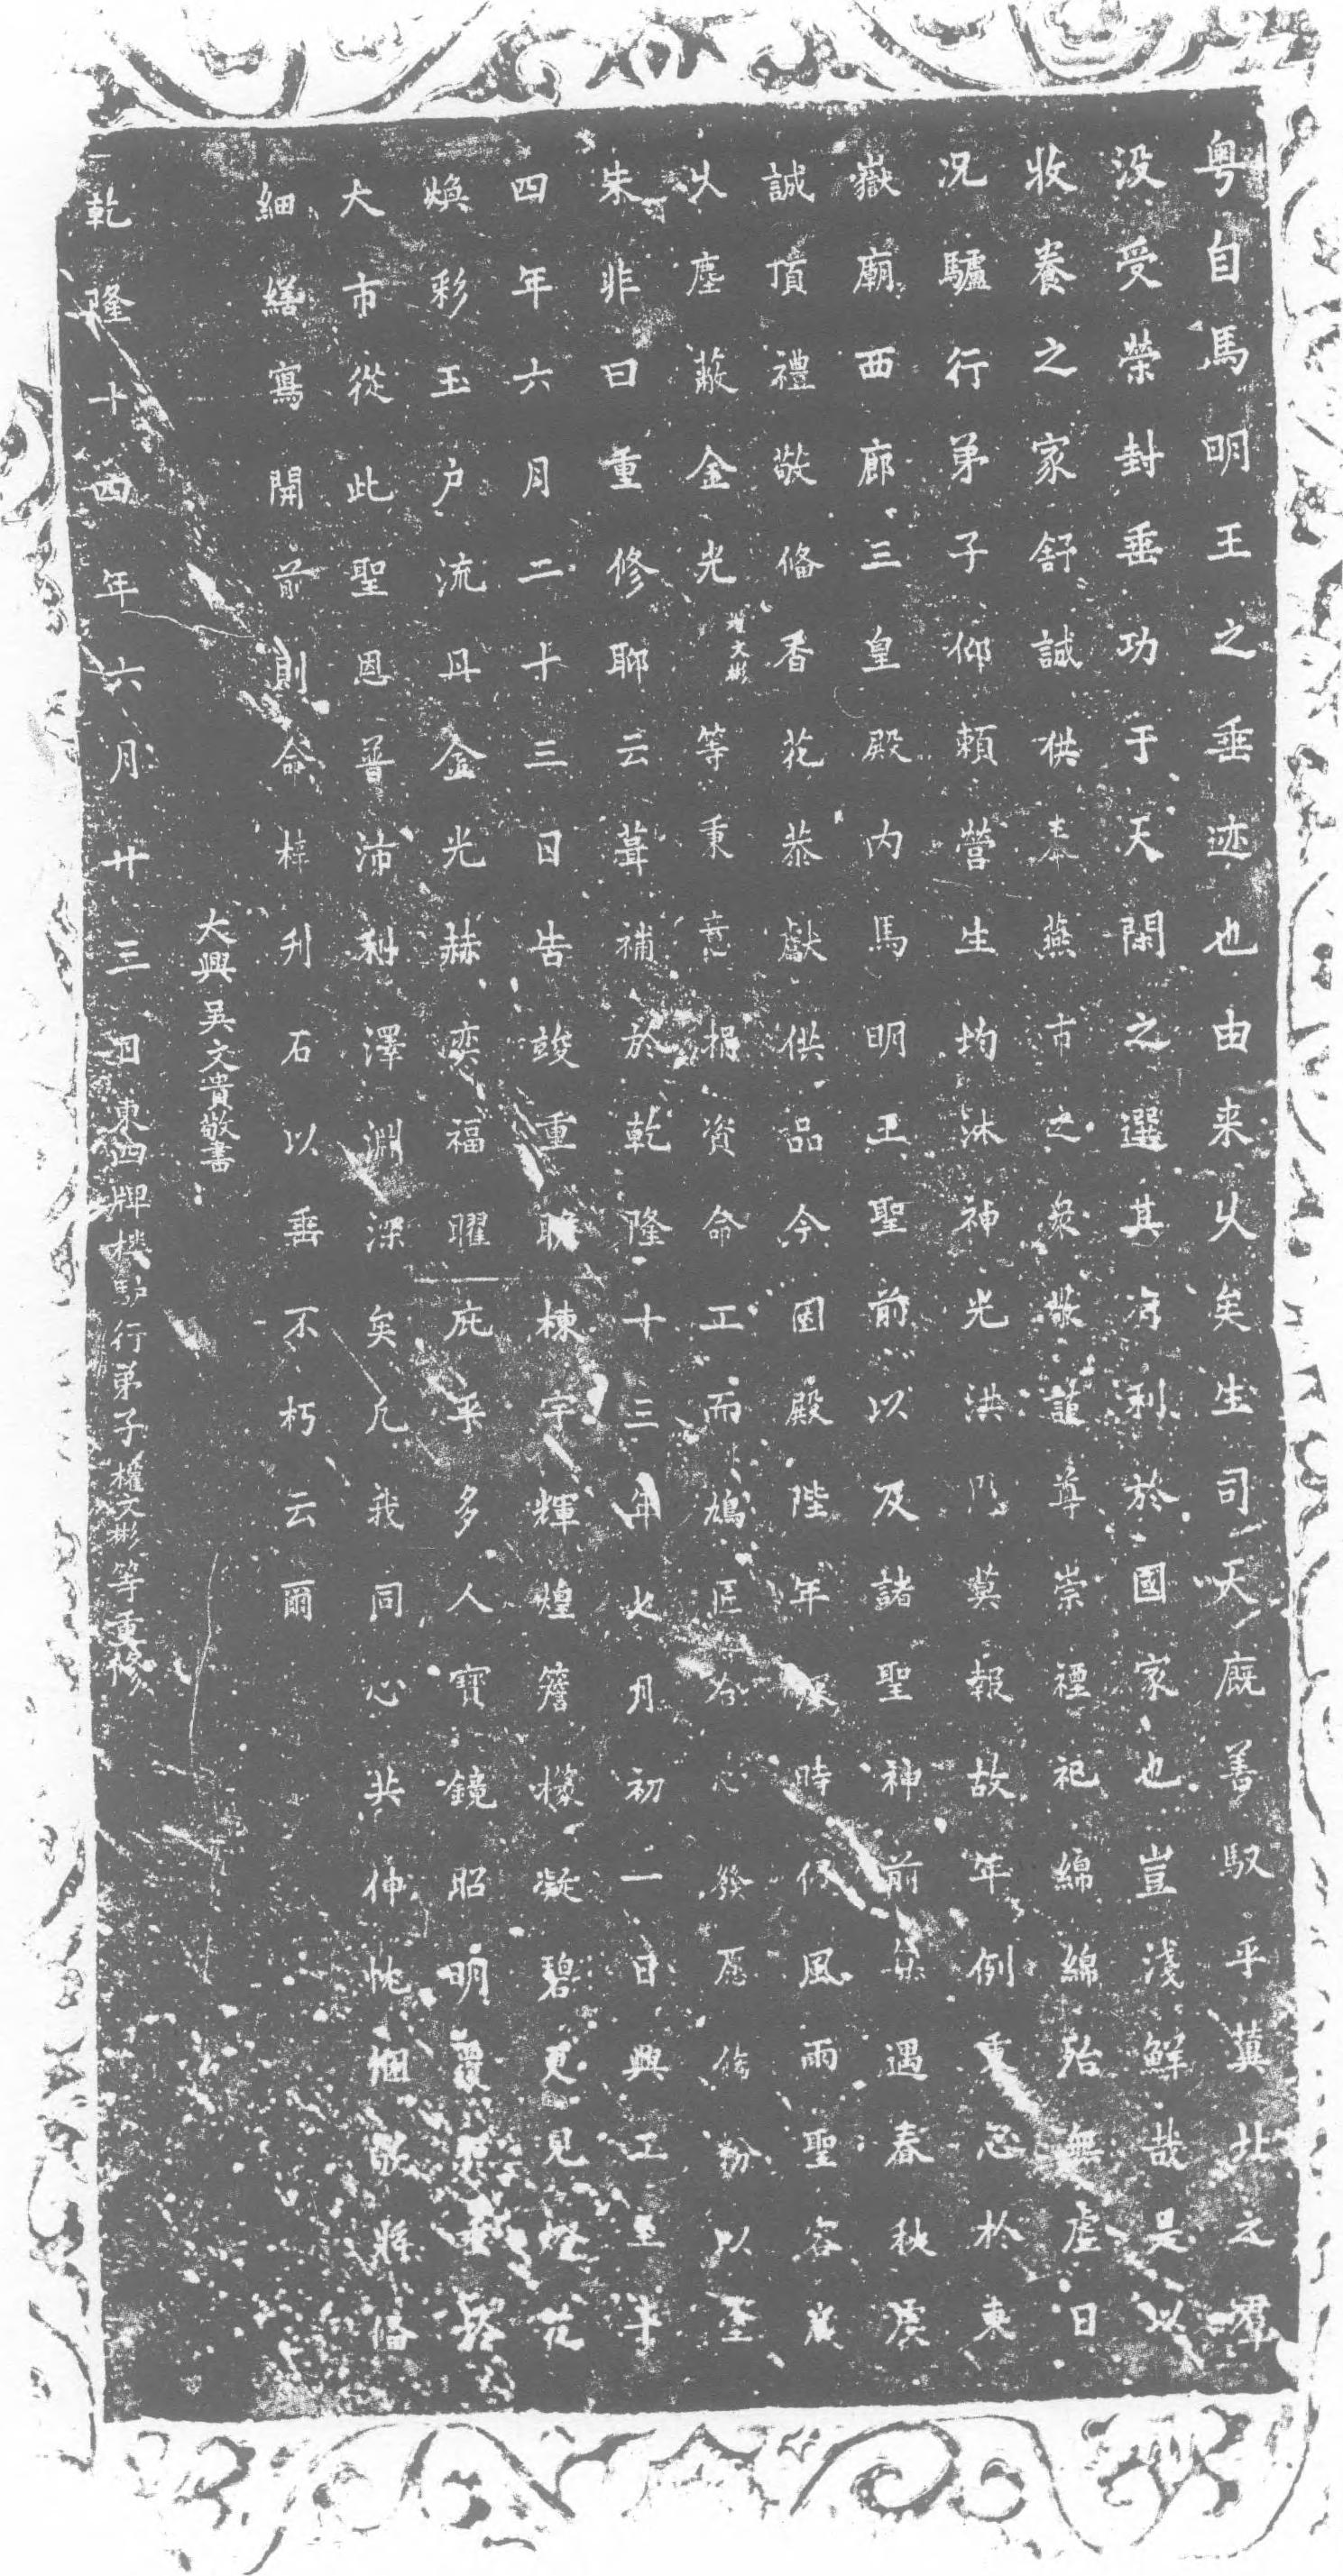 粵自馬明王之垂迹也由来乆矣生司天廐善馭乎冀北之羣
没受榮封垂功于天閑之選其有利於國家也豈淺鮮哉是以
收養之家舒誠供奉燕市之衆敬謹尊崇禋祀綿綿殆無虛日
况驢行弟子仰賴營生均沐神光洪門莫報故年例重忍於東
嶽廟西廊三皇殿内馬明王聖前以及諸聖神前每遇春秋虔
誠頂禮敬俻香花恭獻供品今因殿陛年深時仍風雨聖容
乆塵蔽金光權文彬等秉意捐資命工而鳩匠合心發愿以至
朱非曰重修聊云葺補於乾隆十三年七月初一日興工至十
四年六月二十三日告竣重睹棟宇輝煌簷楹凝碧更見
煥彩玉户流丹金光赫奕福曜庇乎多人寶鏡昭明
大市從此聖恩普沛利澤淵深矣凡我同心共伸忱悃敬將俻
細繕寫開前則命梓刋石以垂不朽云爾
大興吳文貴敬書
乾隆十四年六月廿三日東四牌樓馿行弟子權文彬等重修